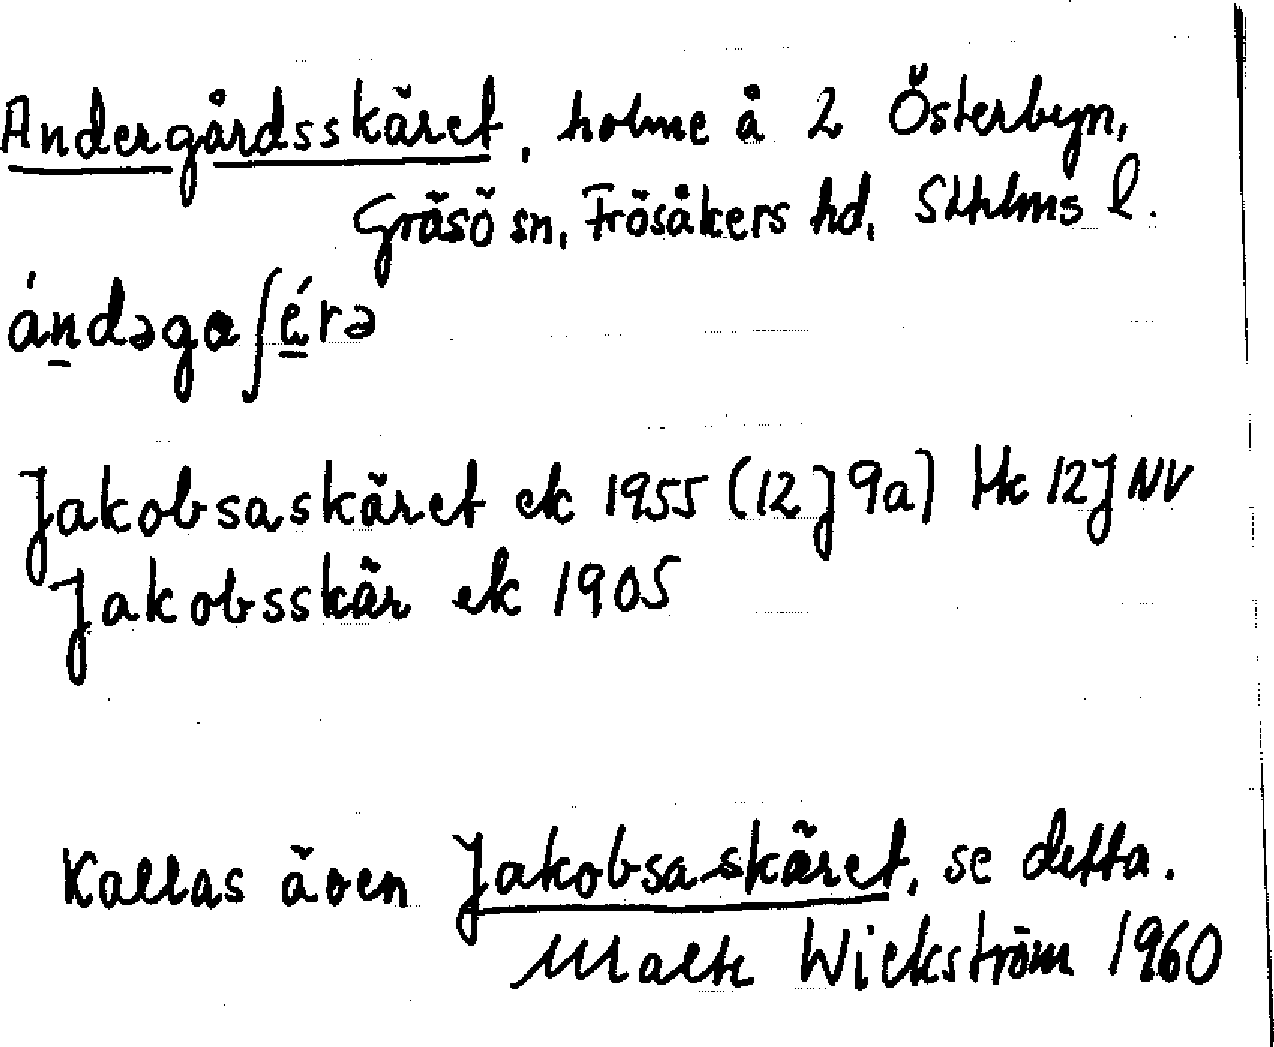 Andergårdsskäret, holme å 2 Österbyn,
Gräsö sn, Frösåkers hd, Sthlms l.
ándəgaʃérə
Jakobsaskäret ek 1955 (12J 9a) Hk 12J NV
Jakobsskär ek 1905
Kallas även Jakobsaskäret, se detta.
Malte Wickström 1960